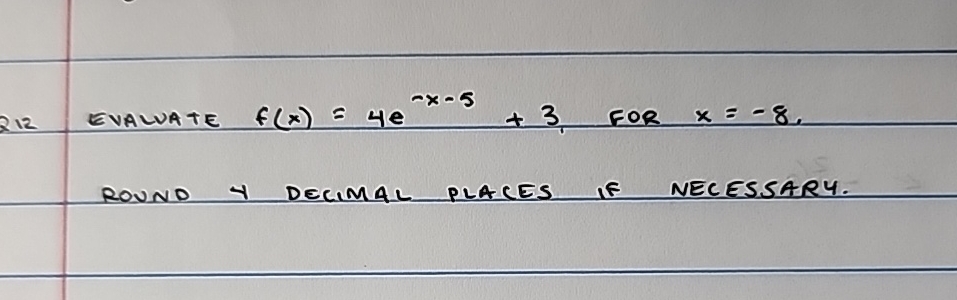 Q12 EVALUATE f(x) = 4e^(-x-5) + 3, FOR x = -8.
ROUND 4 DECIMAL PLACES IF NECESSARY.